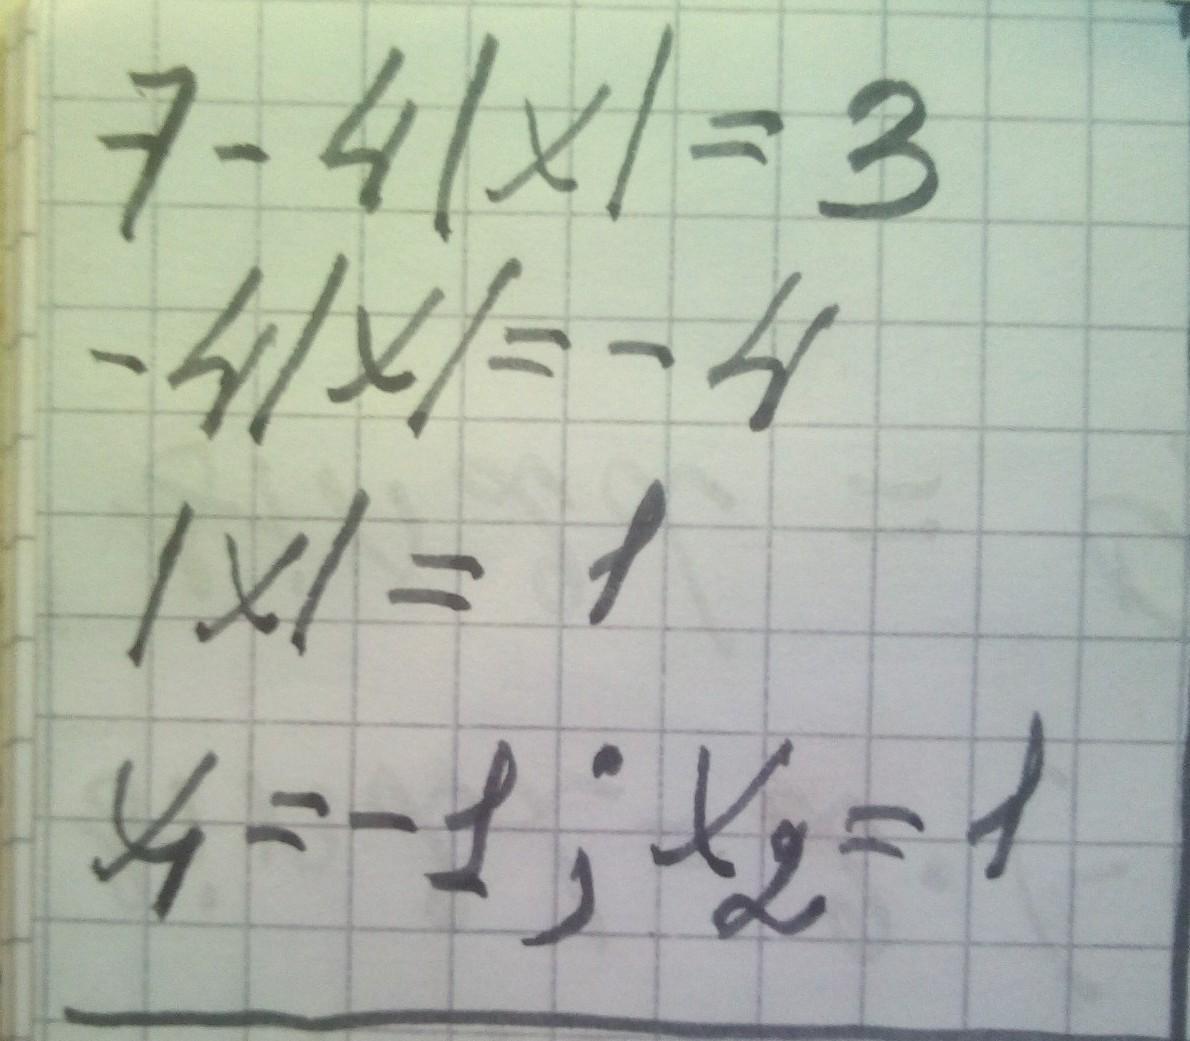 7 - 4|x| = 3
-4|x| = -4
|x| = 1
x₁ = -1; x₂ = 1